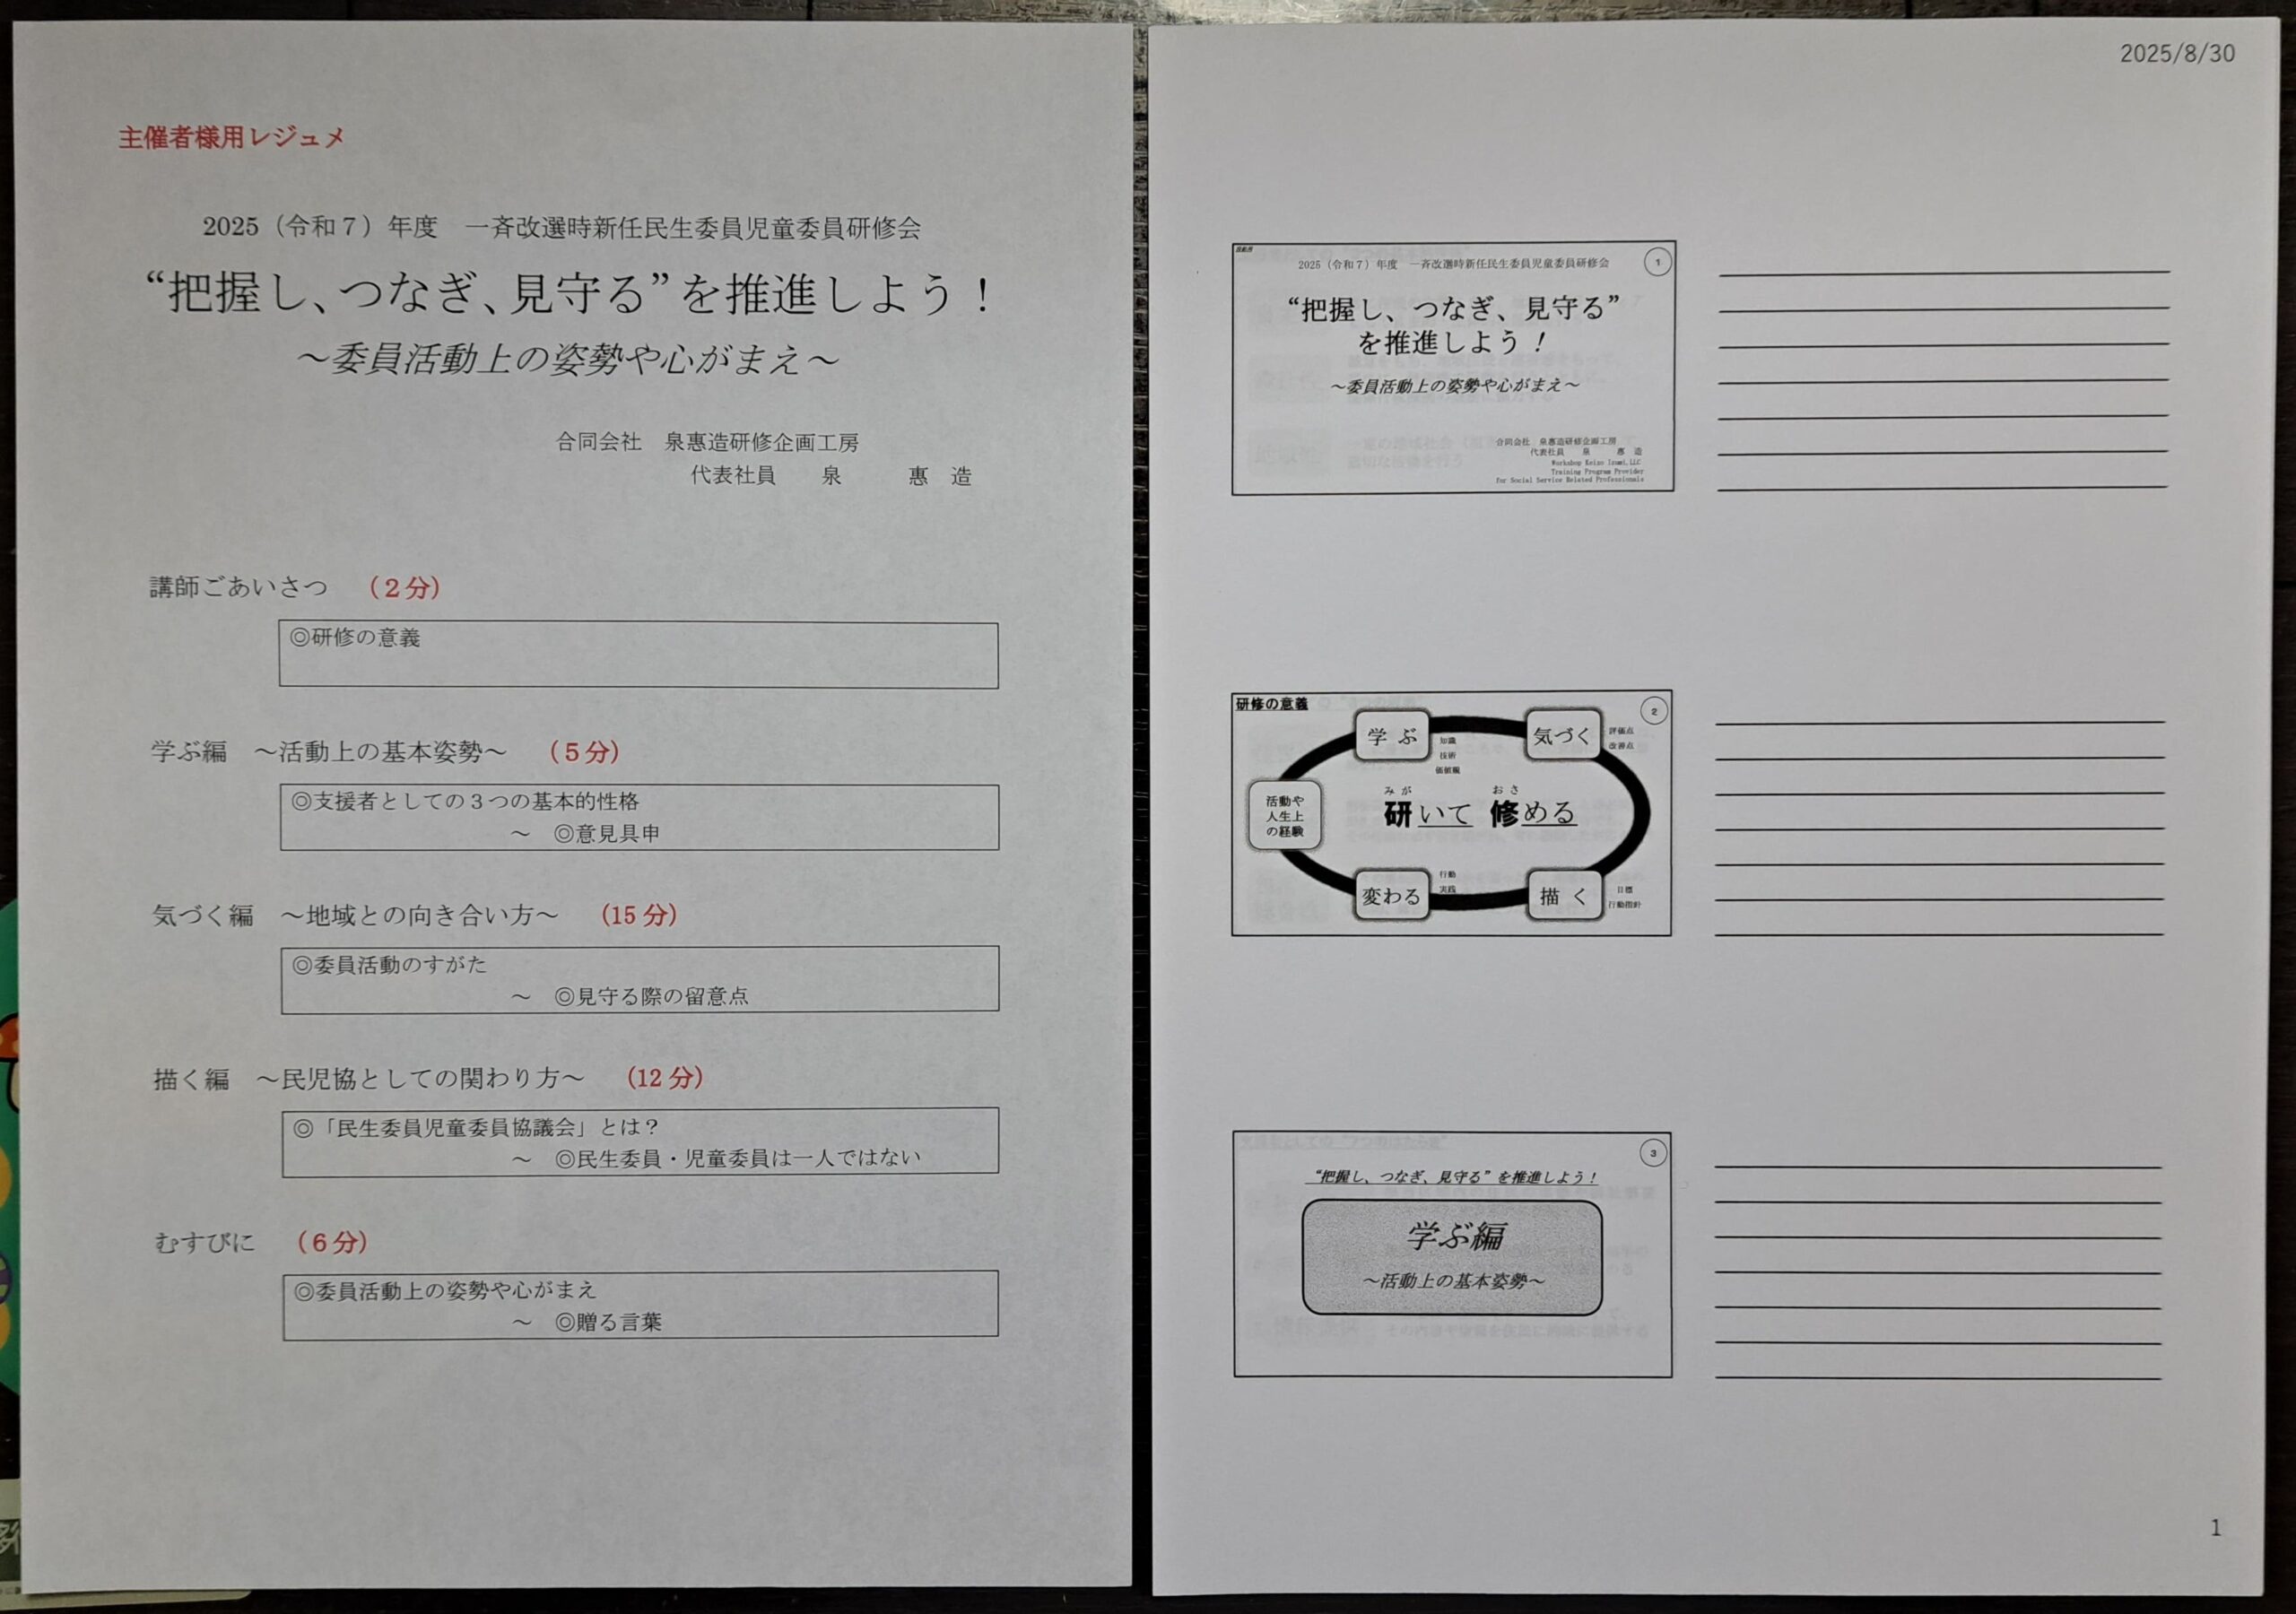 主催者様用レジュメ
2025（令和７）年度　一斉改選時新任民生委員児童委員研修会
“把握し、つなぎ、見守る”を推進しよう！
～委員活動上の姿勢や心がまえ～
合同会社　泉惠造研修企画工房
代表社員　泉　惠　造
講師ごあいさつ　（２分）
◎研修の意義
学ぶ編　～活動上の基本姿勢～　（５分）
◎支援者としての３つの基本的性格
～　◎意見具申
気づく編　～地域との向き合い方～　（15分）
◎委員活動のすがた
～　◎見守る際の留意点
描く編　～民児協としての関わり方～　（12分）
◎「民生委員児童委員協議会」とは？
～　◎民生委員・児童委員は一人ではない
むすびに　（６分）
◎委員活動上の姿勢や心がまえ
～　◎贈る言葉
2025/8/30
1
2025（令和７）年度　一斉改選時新任民生委員児童委員研修会
“把握し、つなぎ、見守る”
を推進しよう！
～委員活動上の姿勢や心がまえ～
合同会社　泉惠造研修企画工房
代表社員　泉　惠　造
Workshop Keizo Izumi,LLC
Training Program Provider
for Social Service Related Professionals
研修の意義
2
学ぶ
知識
技術
価値観
気づく
評価点
改善点
活動や
人生上
の経験
みが　おさ
研いて　修める
変わる
行動
実践
描く
目標
行動指針
3
“把握し、つなぎ、見守る”を推進しよう！
学ぶ編
～活動上の基本姿勢～
1